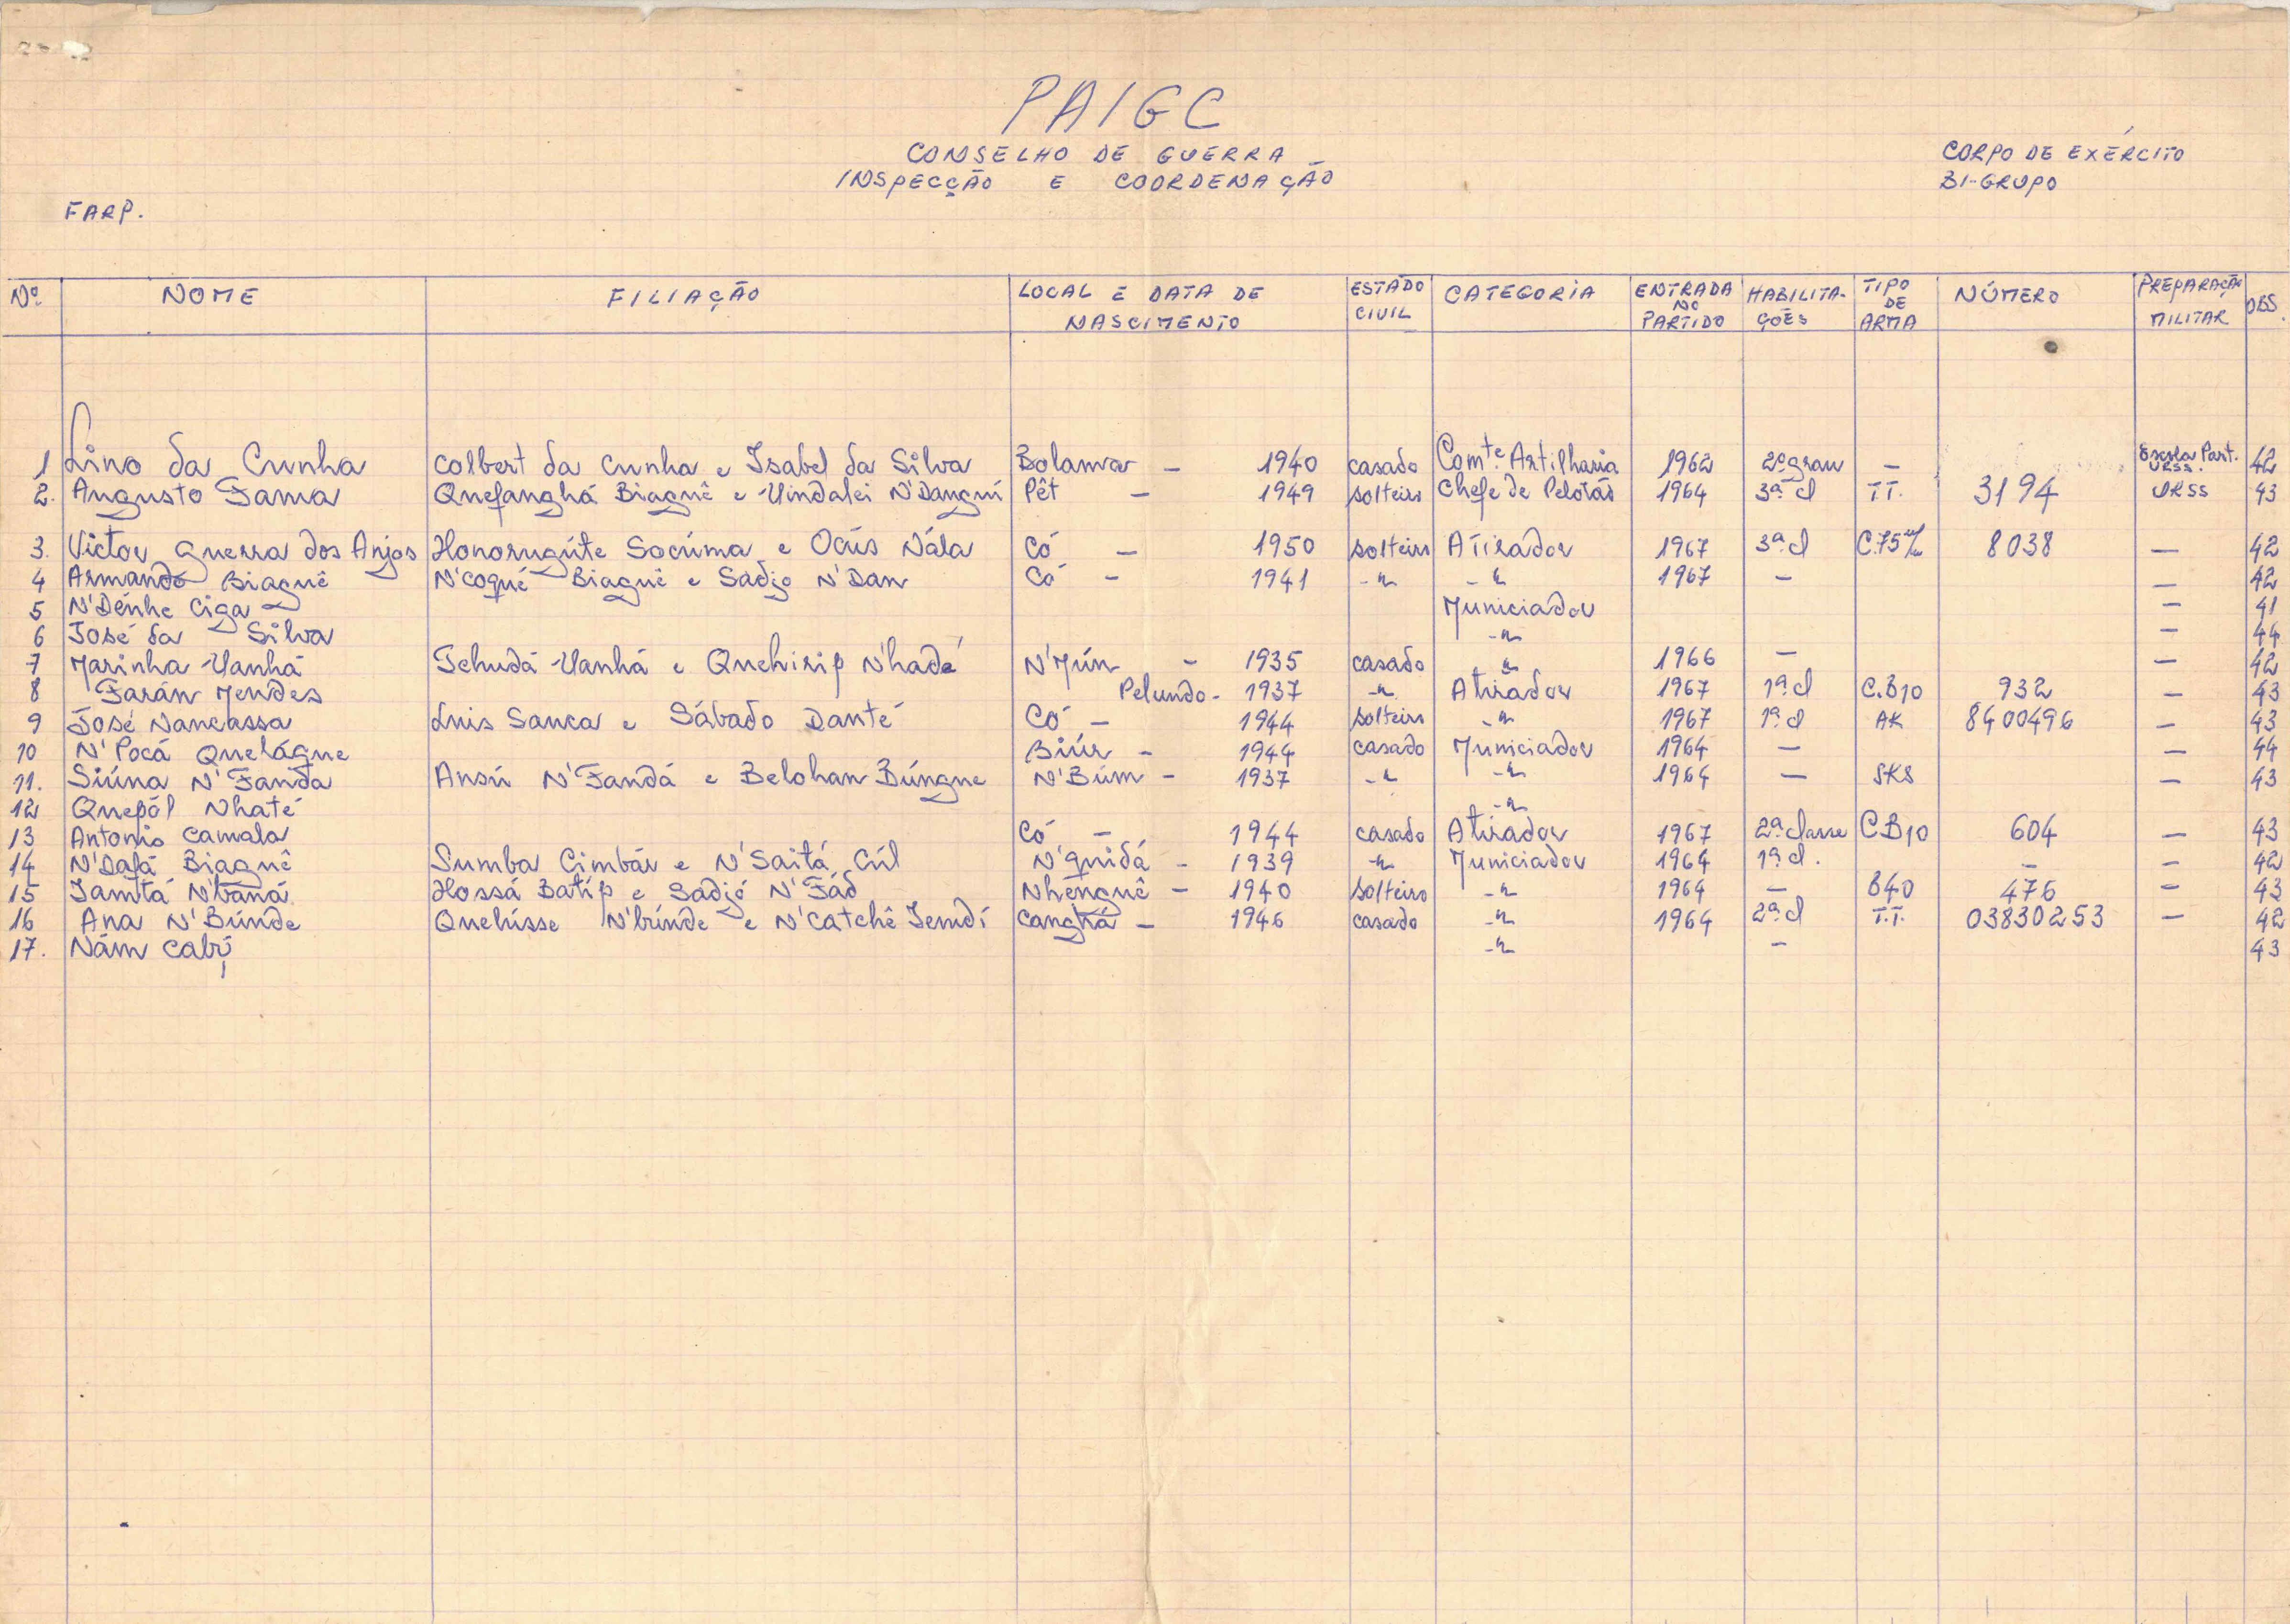 PAIGC
CONSELHO DE GUERRA
INSPECÇÃO E COORDENAÇÃO
CORPO DE EXÉRCITO
BI-GRUPO
FARP.
Nº NOME FILIAÇÃO LOCAL E DATA DE NASCIMENTO ESTADO CIVIL CATEGORIA ENTRADA NO PARTIDO HABILITA-ÇÕES TIPO DE ARMA NÚMERO PREPARAÇÃO MILITAR OBS.
1 Lino da Cunha Colbert da Cunha e Isabel da Silva Bolama - 1940 casado Comte. Artilharia 1962 2º grau - Escola Part. URSS. 42
2. Augusto Fama Quefanghá Biaguê e Uindalei N'Danguí Pêt - 1949 solteiro Chefe de Pelotão 1964 3ª cl T.T. 3194 URSS 43
3. Victor Guerra dos Anjos Honorugúte Socúma e Ocús Nála Có - 1950 solteiro Atirador 1967 3ª cl C.75 8038 - 42
4 Armando Biaguê N'coqué Biaguê e Sadjo N'Dan Có - 1941 -"- -"- 1967 - - 42
5 N'Dénhe Ciga Municiador - 41
6 José da Silva -"- - 44
7 Marinha Uanhá Tchudá Uanhá e Quehirip N'hadé N'Mún - 1935 casado -"- 1966 - - 42
8 Farán Mendes Pelundo - 1937 -"- Atirador 1967 1ª cl C.B10 932 - 43
9 José Nancassa Luis Sanca e Sábado Danté Có - 1944 solteiro -"- 1967 1ª cl AK 8400496 - 43
10 N'Pocá Quelágne Biúr - 1944 casado Municiador 1964 - - 44
11. Siúna N'Fanda Ansú N'Fandá e Belohan Búngue N'Búm - 1937 -"- -"- 1964 - SKS - 43
12 Quepól Nhaté -"-
13 Antonio Camala Có - 1944 casado Atirador 1967 2ª classe C.B10 604 - 43
14 N'Dafá Biaguê Sumba Cimbár e N'Saitá Cúl N'quidá - 1939 -"- Municiador 1964 1ª cl. - - 42
15 Tamtá N'baná Hossá Batíp e Sadjó N'Fád Nhenguê - 1940 solteiro -"- 1964 - 840 476 - 43
16 Ana N'Búnde Quehísse N'búnde e N'Catchê Temdí Canghá - 1946 casado -"- 1964 2ª cl T.T. 03830253 - 42
17. Nám Cabí -"- - 43